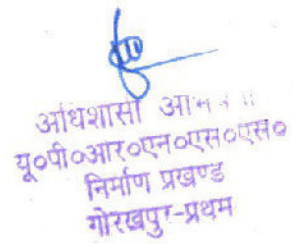 अधिशासी
यू०पी०आर०एन०एस०एस०
निर्माण प्रखण्ड
गोरखपुर-प्रथम